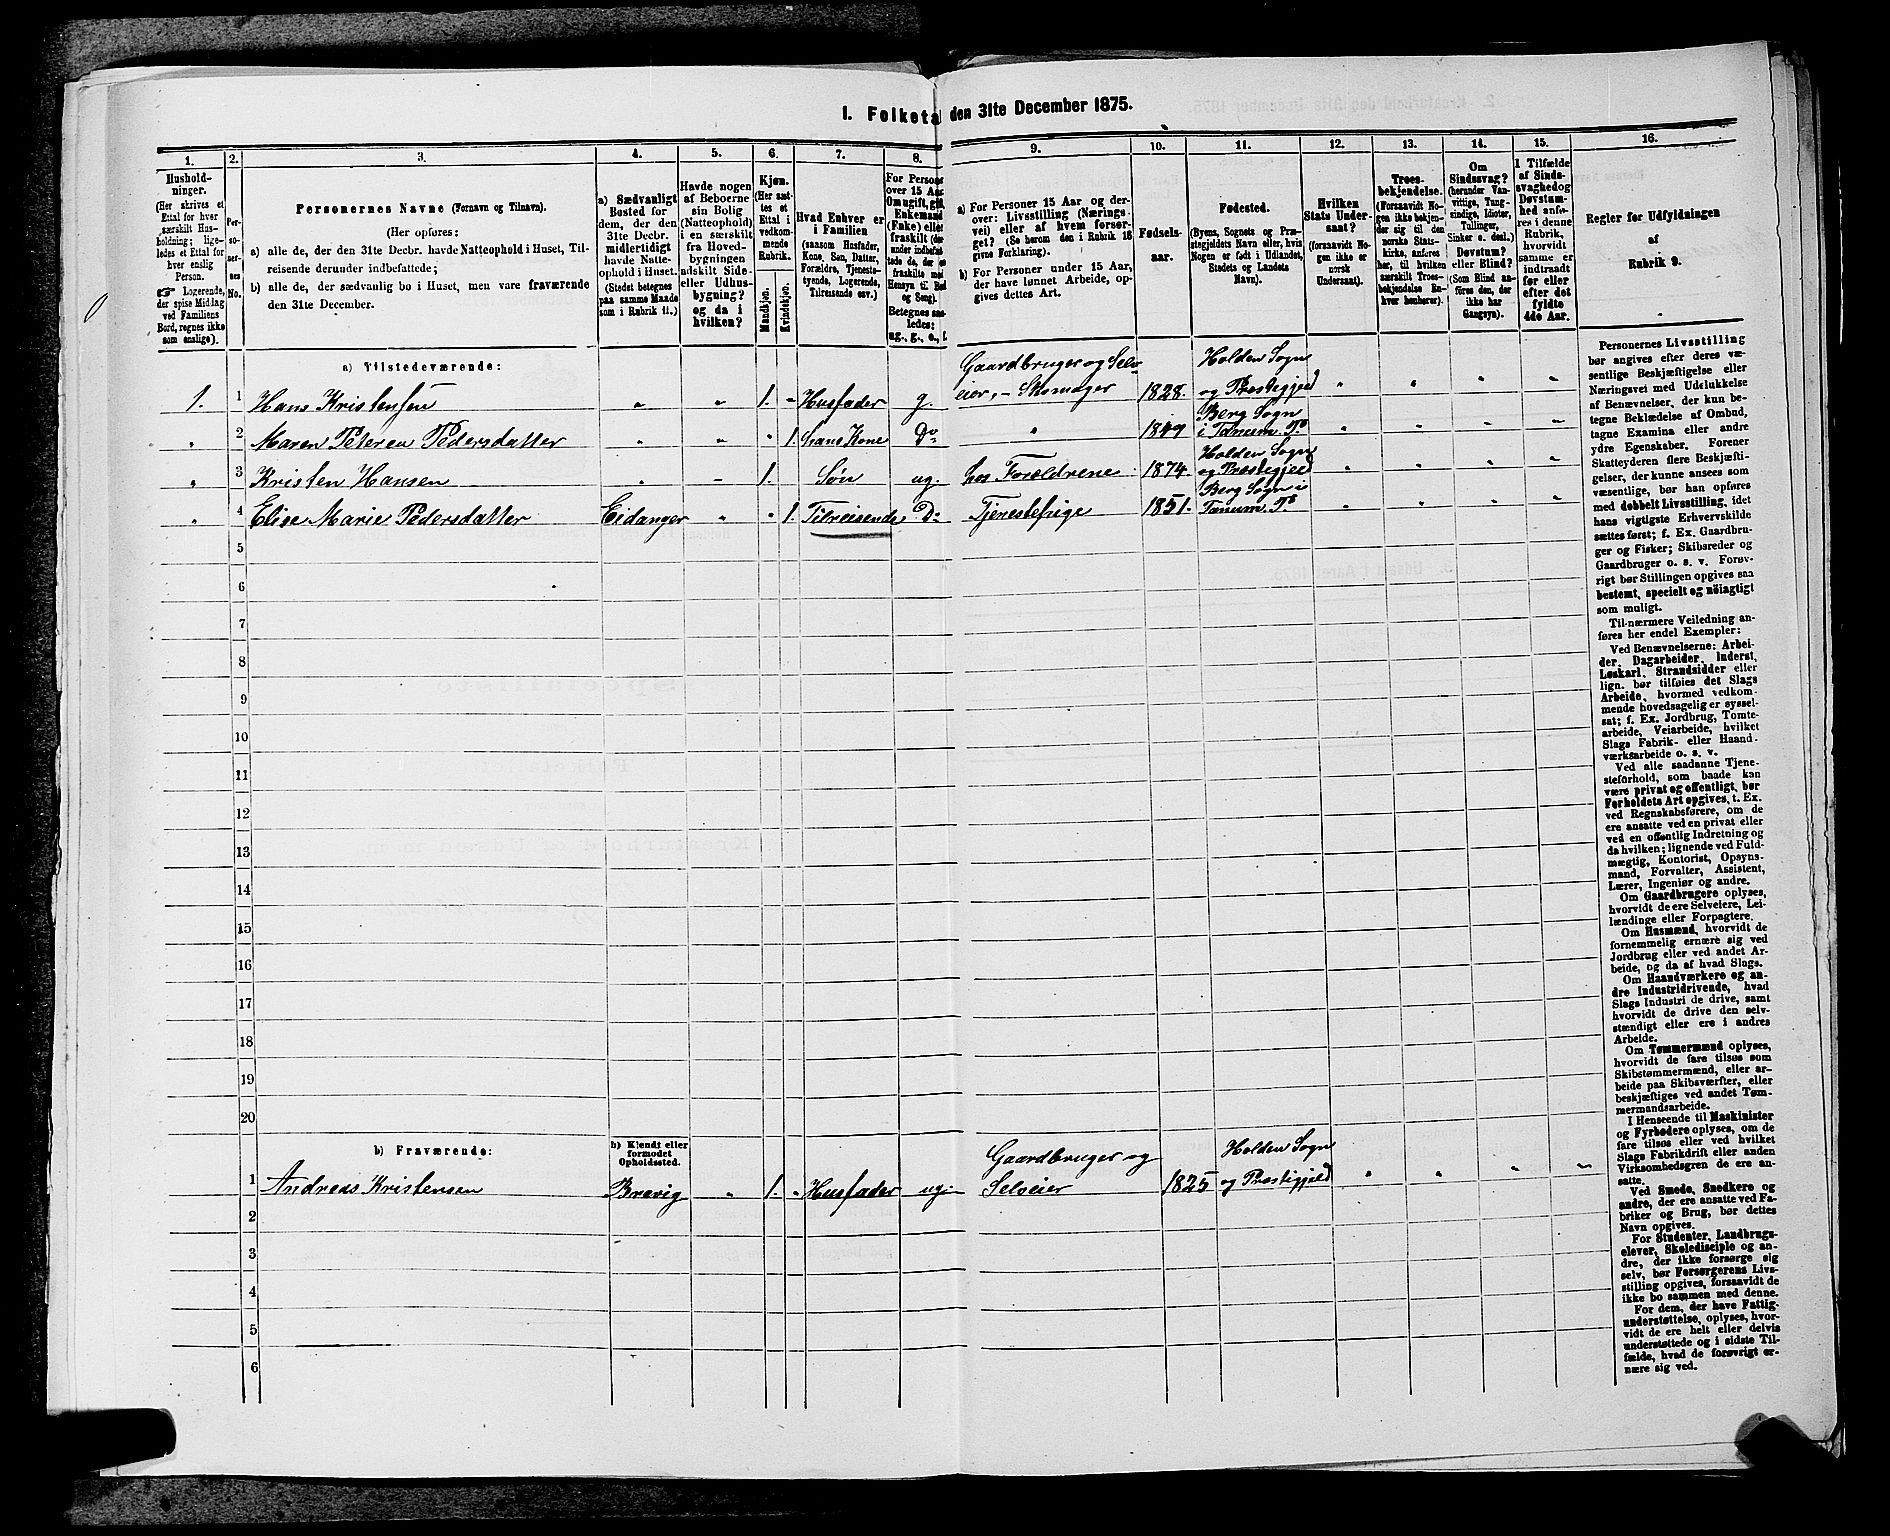 I. Folketa den 31te December 1875.
1.
Hushold-
ninger.
(Her skrives et
Ettal for hver
særskilt Hus-
holdning; lige-
ledes et Ettal for
hver enslig
Person.
Logerende,
der spise Middag
ved Familiens
Bord, regnes ikke
som enslige).
2.
Per-
so-
ner-
nes
No.
3.
Personernes Navne (Fornavn og Tilnavn).
(Her opføres:
a) alle de, der den 31te Decbr. havde Natteophold i Huset, Til-
reisende derunder indbefattede;
b) alle de, der sædvanlig bo i Huset, men vare fraværende
den 31te December.
4.
a) Sædvanligt
Bosted for
dem, der den
31te Decbr.
midlertidigt
havde Natte-
ophold i Huset.
(Stedet betegnes
paa samme Maade
som i Rubrik 11.)
5.
Havde nogen
af Beboerne
sin Bolig
(Natteophold)
i en særskilt
fra Hoved-
bygningen
adskilt Side-
eller Udhus-
bygning?
og da i
hvilken?
6.
Kjøn.
(Her sæt-
tes et
Ettal i
vedkom-
mende
Rubrik.
Mandkjøn.
Kvindekjøn.
7.
Hvad Enhver er
i Familien
(saasom Husfader,
Kone, Søn, Datter,
Forældre, Tjeneste-
tyende, Logerende,
Tilreisende osv.)
8.
For Persone
over 15 Aar
Om ugift, gif
Enkemand
(Enke) elle
fraskilt (der
under indbefat
tede de, der er
fraskilte med
Hensyn til Bo
og Seng).
Betegnes saa-
ledes:
ug., g., e., f.
9.
a) For Personer 15 Aar og der-
over: Livsstilling (Nærings-
vei) eller af hvem forsør-
get? (Se herom den i Rubrik 16
givne Forklaring).
b) For Personer under 15 Aar,
der have lønnet Arbeide, op-
gives dettes Art.
10.
Fødsels-
aar.
11.
Fødested.
(Byens, Sognets og Præ-
stegjeldets Navn eller, hvis
Nogen er født i Udlandet,
Stedets og Landets
Navn).
12.
Hvilken
Stats Under-
saat?
(forsaavidt No-
gen ikke er
norsk
Undersaat).
13.
Troes-
bekjendelse.
(Forsaavidt No-
gen ikke bekjen-
der sig til den
norske Stats-
kirke, anføres
her, til hvilken
særskilt Troes-
bekjendelse En-
hver henhører).
14.
Om
Sindssvag?
(herunder Van-
vittige, Tung-
sindige, Idioter,
Tullinger,
Sinker o. desl.)
Døvstum?
eller Blind?
(Som Blind an-
føres den, der
ikke har
Gangsyn).
15.
I Tilfælde
af Sinds-
svaghed og
Døvstum-
hed anfø-
res i denne
Rubrik,
hvorvidt
samme er
indtraadt
før eller
efter det
fyldte
4de Aar.
16.
Regler for Udfyldningen
af
Rubrik 9.
a) Tilstedeværende:
1. 1 Hans Kristensen " " 1. - Husfader g. Gaardbruger og Selv-
eier, - Skomager 1828. Holden Sogn
og Præstegjeld " " " "
" 2 Maren Peteren Pedersdatter " " " 1. hans Kone Do " 1849 Berg Sogn
i Tanum Pr " " " "
" 3 Kristen Hansen " - 1. Søn ug. hos Forældrene 1874. Holden Sogn
og Præstegjeld " " " "
" 4 Elise Marie Pedersdatter Eidanger " " 1. Tilreisende Do Tjenestepige 1851. Berg Sogn i
Tanum Pr " " " "
5
6
7
8
9
10
11
12
13
14
15
16
17
18
19
20
b) Fraværende:
b) Kjendt eller
formodet
Opholdssted.
1 Andreas Kristensen Brevig " 1. " Husfader ug. Gaardbruger og
Selveier 1825 Holden Sogn
og Præstegjeld " " " "
2
3
4
5
6
Personernes Livsstilling
bør angives efter deres væ-
sentlige Beskjæftigelse eller
Næringsvei med Udelukkelse
af Benævnelser, der kun be-
tegne Beklædelse af Ombud,
tagne Examina eller andre
ydre Egenskaber. Forener
Skatteyderen flere Beskjæfti-
gelser, der kunne ansees som
væsentlige, bør han opføres
med dobbelt Livsstilling, idet
hans vigtigste Erhvervskilde
sættes først; f. Ex. Gaardbru-
ger og Fisker; Skibsreder og
Gaardbruger o. s. v. Forøv-
rigt bør Stillingen opgives saa
bestemt, specielt og nøiagtigt
som muligt.
Til nærmere Veiledning an-
føres her endel Exempler:
Ved Benævnelserne: Arbei-
der, Dagarbeider, Inderst,
Løskarl, Strandsidder eller
lign. bør tilføies det Slags
Arbeide, hvormed vedkom-
mende hovedsagelig er syssel-
sat; f. Ex. Jordbrug, Tomte-
arbeide, Veiarbeide, hvilket
Slags Fabrik- eller Haand-
værksarbeide o. s. v.
Ved alle saadanne Tjene-
steforhold, som baade kan
være privat og offentligt, bør
Forholdets Art opgives, t. Ex.
ved Regnskabsførere, om de
ere ansatte ved en privat eller
ved en offentlig Indretning og
da hvilken; lignende ved Fuld-
mægtig, Kontorist, Opsyns-
mand, Forvalter, Assistent,
Lærer, Ingeniør og andre.
Om Gaardbrugere oplyses,
hvorvidt de ere Selveiere, Lei-
lændinge eller Forpagtere.
Om Husmænd, hvorvidt de
fornemmelig ernære sig ved
Jordbrug eller ved andet Ar-
beide, og da af hvad Slags.
Om Haandværkere og an-
dre Industridrivende, hvad
Slags Industri de drive, samt
hvorvidt de drive den selv-
stændigt eller ere i andres
Arbeide.
Om Tømmermænd oplyses,
hvorvidt de fare tilsøs som
Skibstømmermænd, eller ar-
beide paa Skibsværfter, eller
beskjæftiges ved andet Tøm-
mermandsarbeide.
I Henseende til Maskinister
og Fyrbødere oplyses, om de
fare tilsøs eller ved hvilket
Slags Fabrikdrift eller anden
Virksomhedsgren de ere an-
satte.
Ved Smede, Snedkere og
andre, der ere ansatte ved Fa-
briker og Brug, bør dettes
Navn opgives.
For Studenter, Landbrugs-
elever, Skoledisciple og an-
dre, der ikke forsørge sig
selv, bør Forsørgerens Livs-
stilling opgives, forsaavidt de
ikke bo sammen med denne.
For dem, der have Fattig-
understøttelse, oplyses, hvor-
vidt de ere helt eller delvis
understøttede og i sidste Til-
fælde, hvad de forøvrigt er-
nære sig ved.